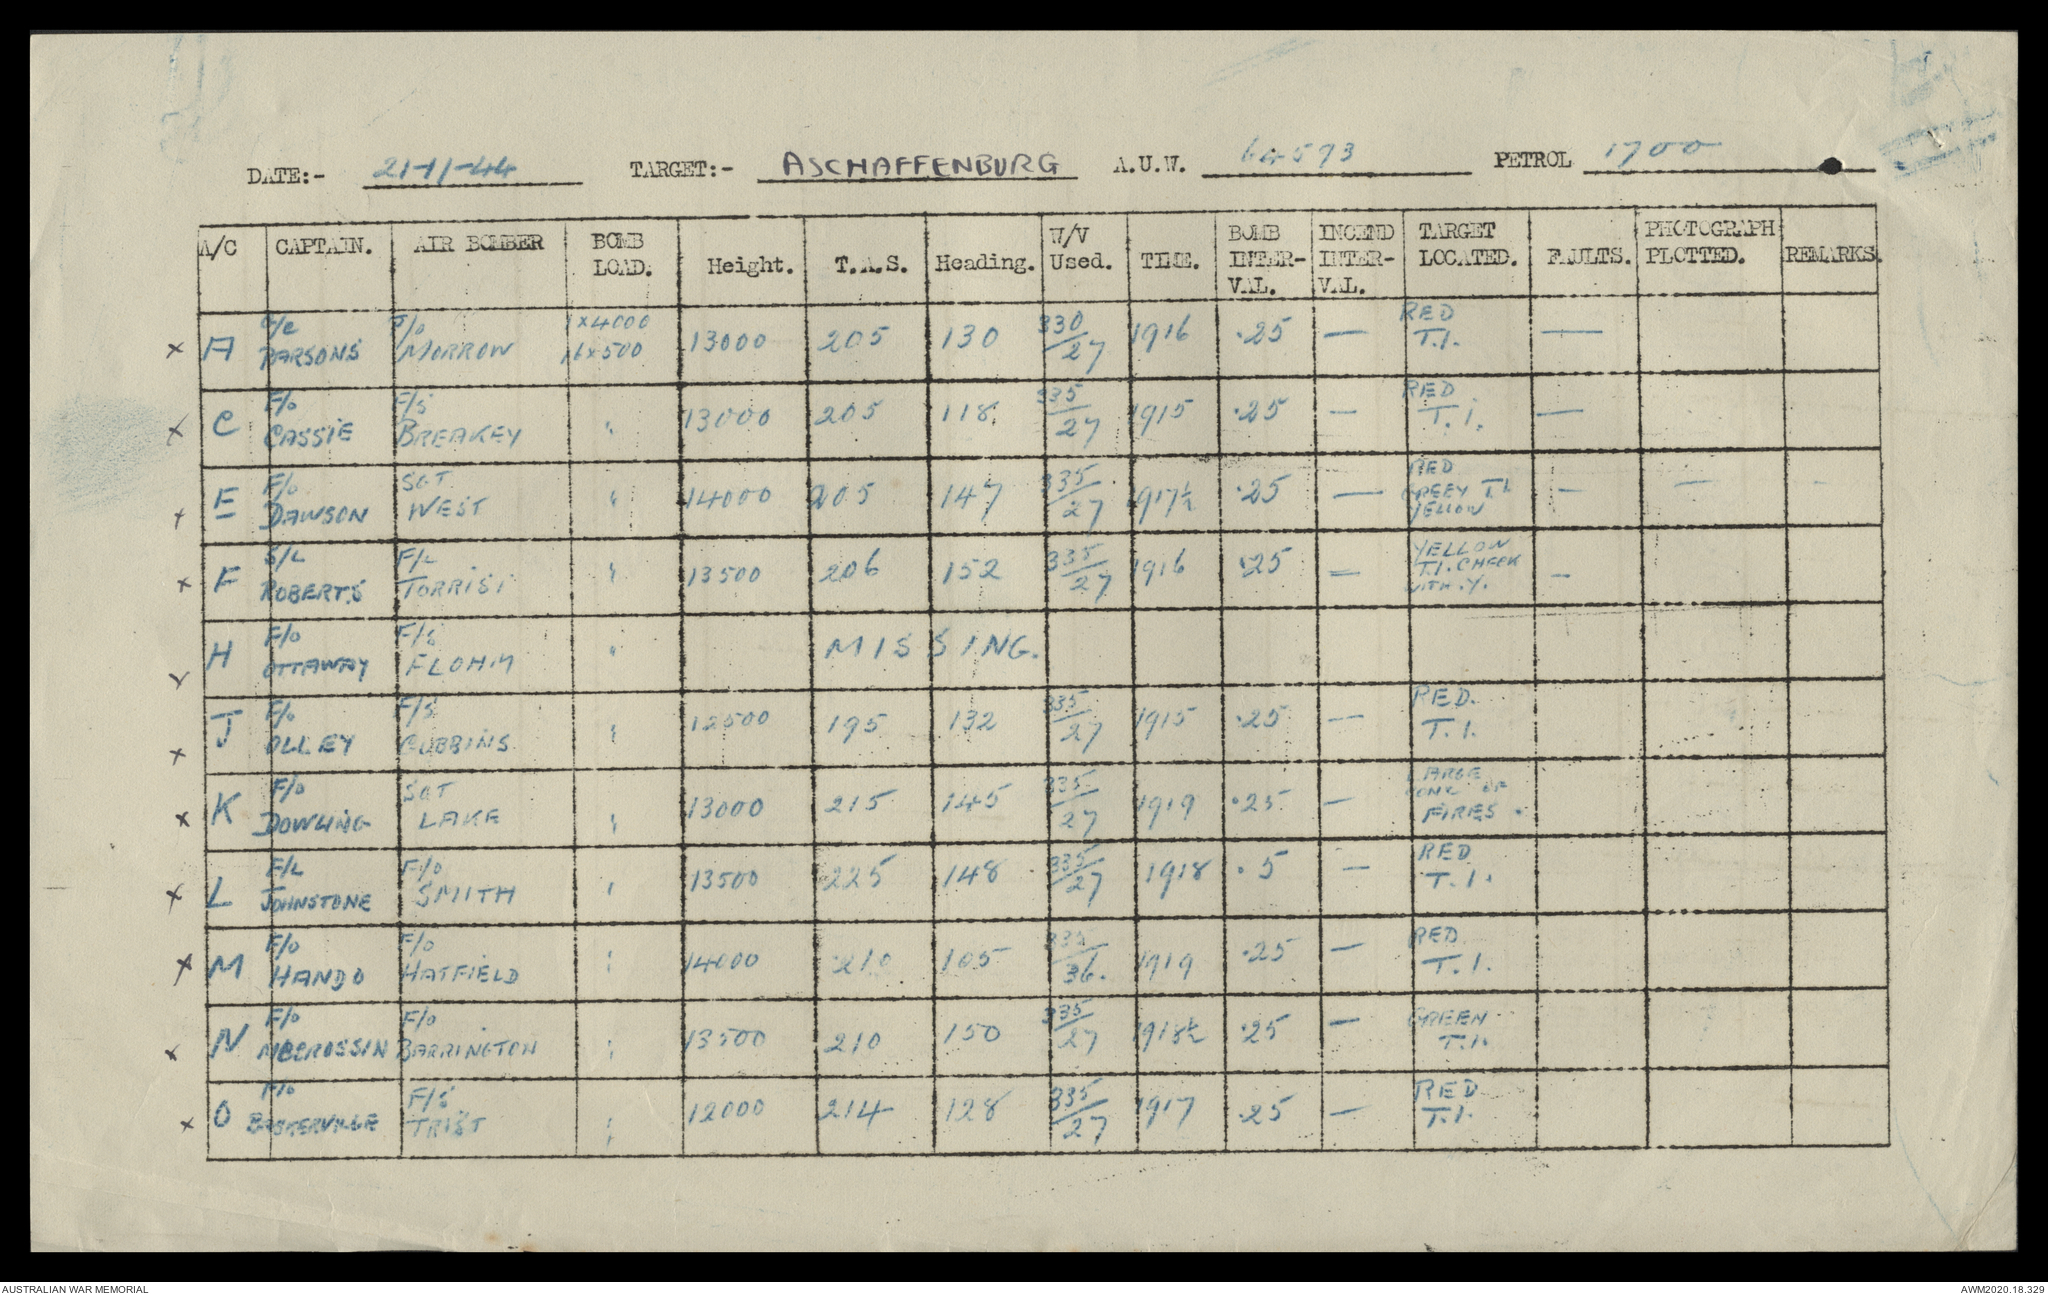 DATE:- 21-11-44 TARGET:- ASCHAFFENBURG A.U.W. 64573 PETROL 1700
A/C CAPTAIN. AIR BOMBER BOMB LOAD. Height. T.A.S. Heading. W/V Used. TIME. BOMB INTER-VAL. INCEND INTER-VAL. TARGET LOCATED. FAULTS. PHOTOGRAPH PLOTTED. REMARKS.
x A G/C PARSONS MORROW 1x4000 16x500 13000 205 130 330/27 1916 .25 — RED T.I. —
x C F/O CASSIE F/S BREAKEY " 13000 205 118 335/27 1915 .25 — RED T.I. —
x E F/O DAWSON SGT WEST " 14000 205 147 335/27 1917½ .25 — RED GREEY T.I. YELLOW — — -
x F S/L ROBERTS F/L TORRISI " 13500 206 152 335/27 1916 .25 — YELLOW T.I. CHECK WITH .Y. —
x H F/O OTTAWAY F/S FLOHM " MISSING.
x J F/O OLLEY F/S GUBBINS " 12500 195 132 335/27 1915 .25 — RED. T.I.
x K F/O DOWLING SGT LAKE " 13000 215 145 335/27 1919 .25 — LARGE CONC OF FIRES.
x L F/L JOHNSTONE F/O SMITH " 13500 225 148 335/27 1918 .5 — RED T.I.
x M F/O HANDO F/O HATFIELD " 14000 210 105 335/36. 1919 .25 — RED T.I.
x N F/O McCROSSIN F/O BARRINGTON " 13500 210 150 335/27 1918½ .25 — GREEN T.I.
x O F/O BASKERVILLE F/S TRIST " 12000 214 128 335/27 1917 .25 — RED T.I.
AUSTRALIAN WAR MEMORIAL AWM2020.18.329